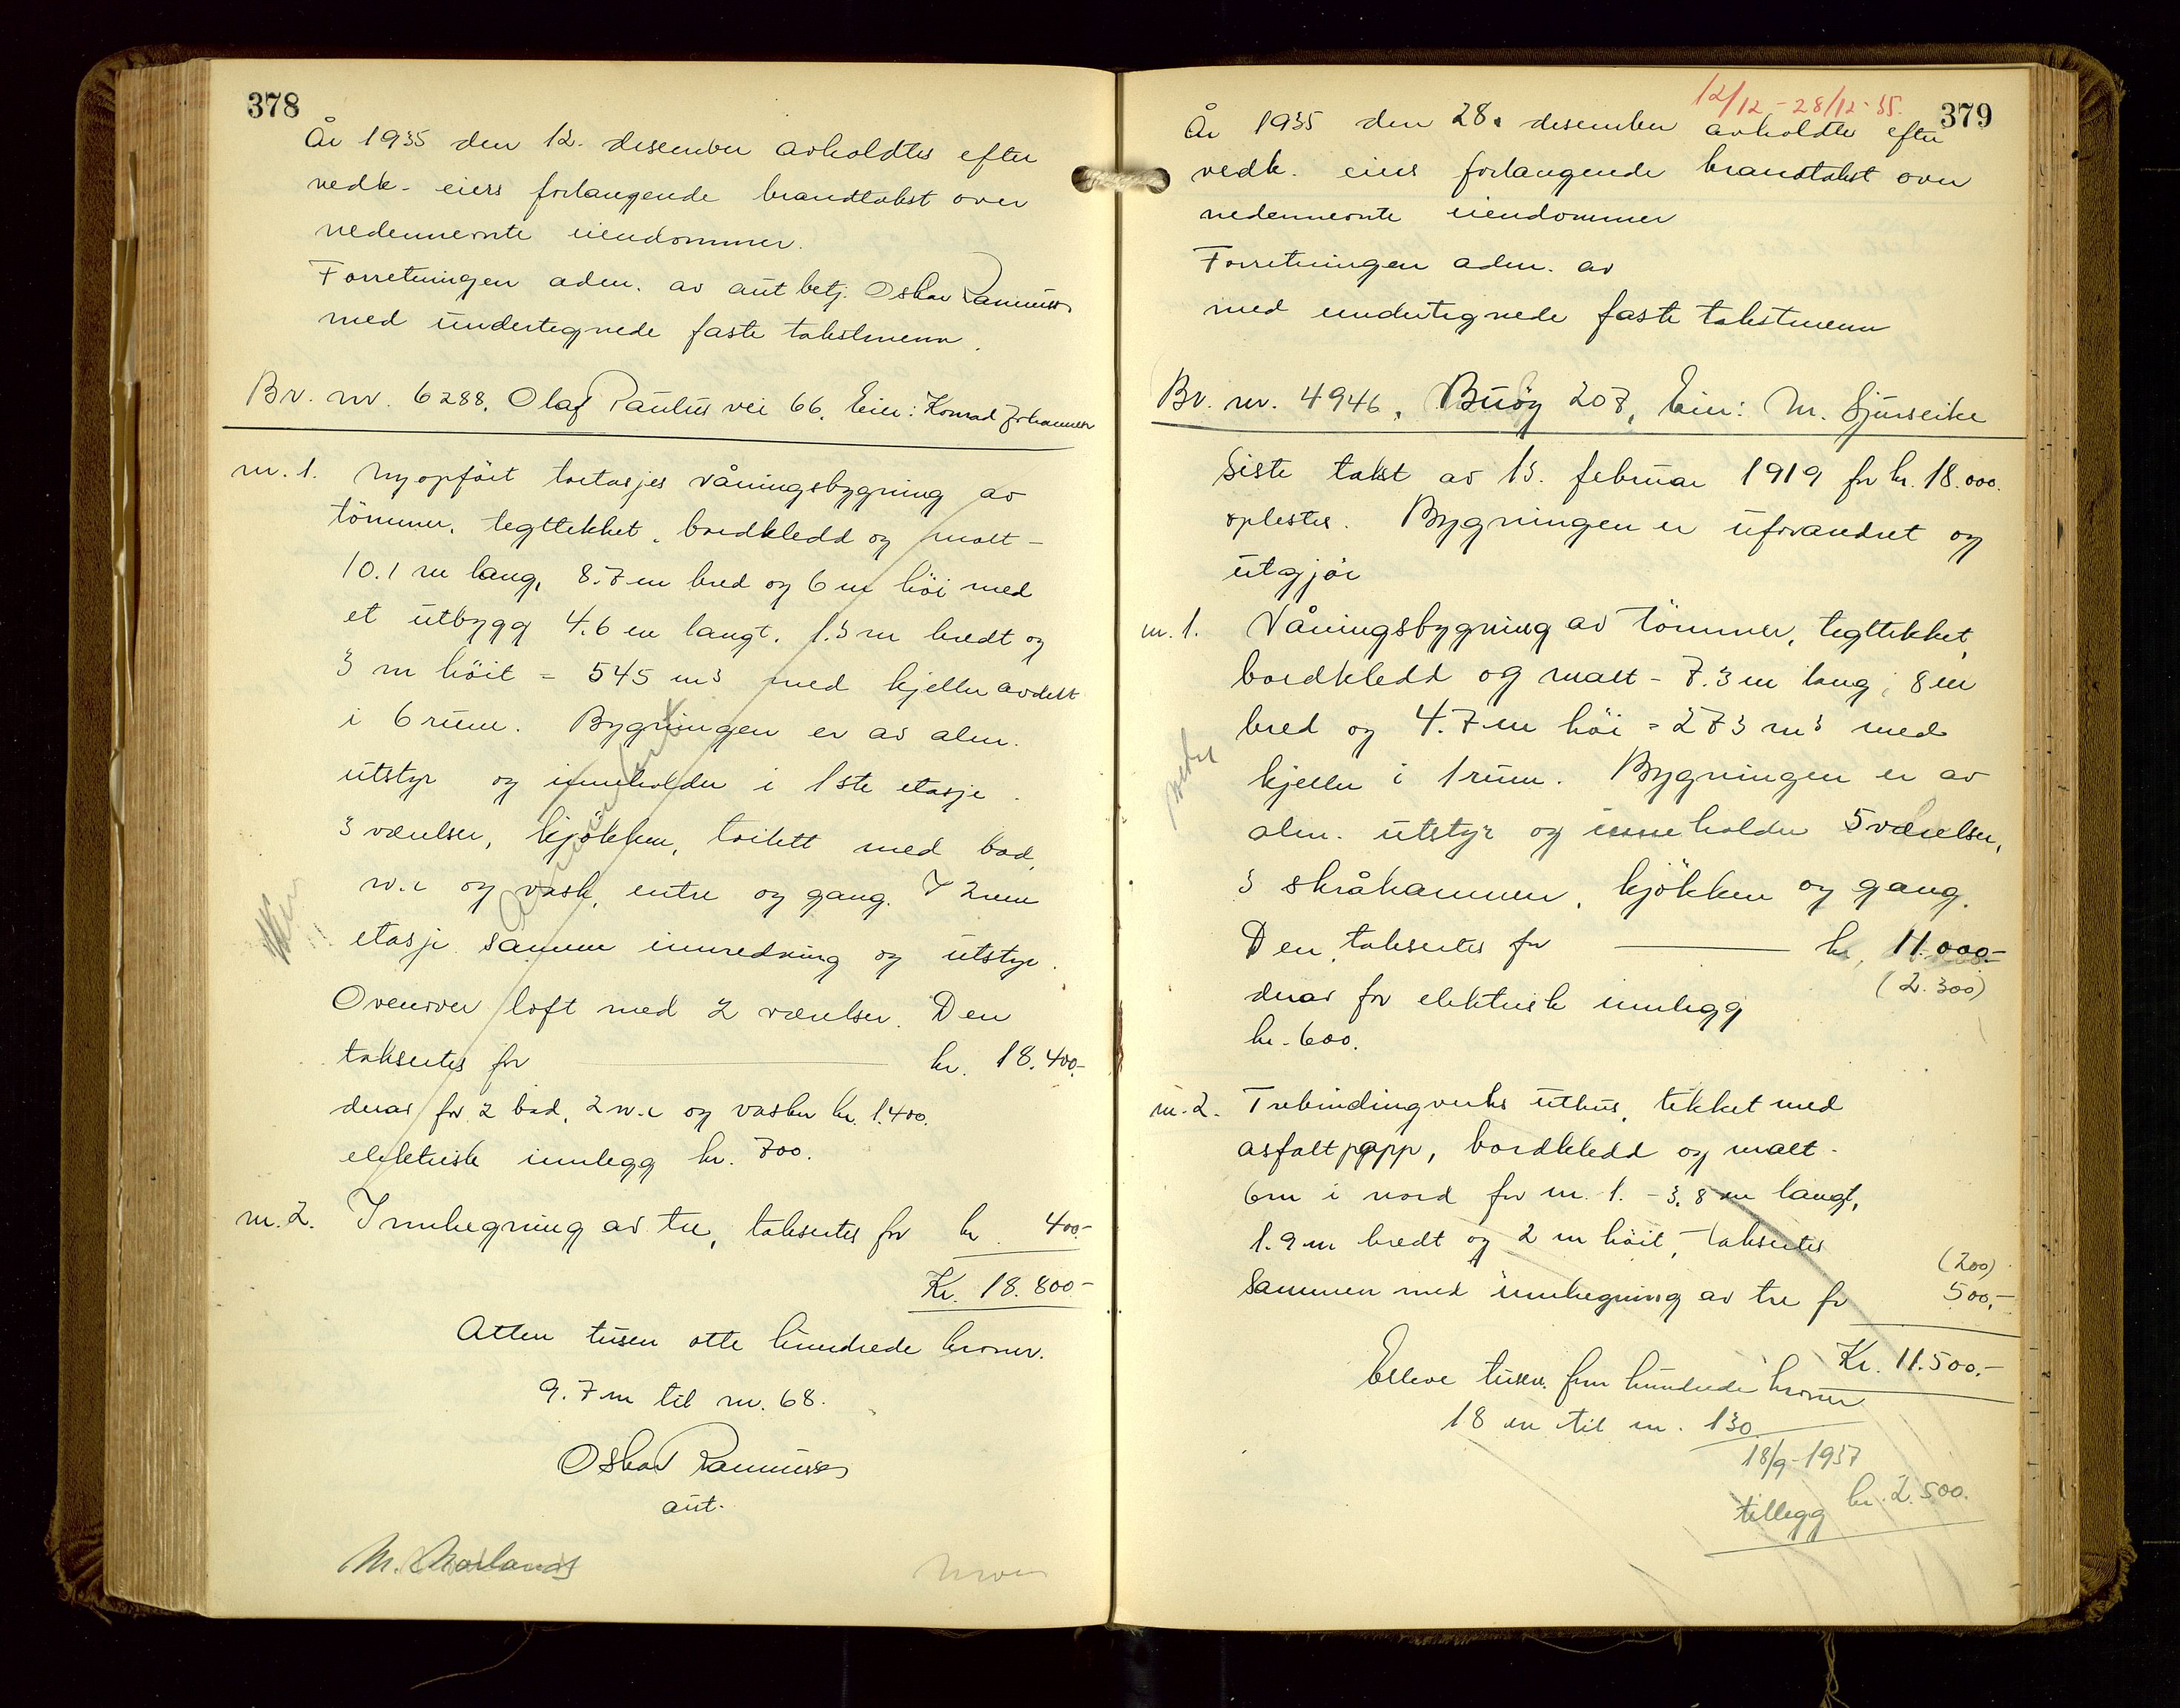 378
År 1935 den 12. desember avholdtes efter
vedk. eiers forlangende brandtakst over
nedennevnte eiendommer.
Forretningen adm. av aut betj. Oskar Rasmussen
med undertegnede faste takstmenn.
Br. nr. 6288. Olaf Paulus vei 66. Eier: Konrad Johannesen
nr. 1. Nyopført toetasjes våningsbygning av
tømmer, tegltekket, bordkledd og malt -
10.1 m lang, 8.7 m bred og 6 m høi med
et utbygg 4.6 m langt, 1.3 m bredt og
3 m høit = 545 m³ med kjeller avdelt
i 6 rum. Bygningen er av alm.
utstyr og inneholder i 1ste etasje
3 værelser, kjøkken, toilett med bad,
w.c og vask, entre og gang. I 2nen
etasje samme innredning og utstyr.
Ovenover loft med 2 værelser. Den
takseres for kr. 18.400.-
derav for 2 bad, 2 w.c og vasker kr. 1.400.
elektrisk innlegg kr. 700.
nr. 2. Innhegning av tre, takseres for kr. 400.-
Kr. 18.800.-
Atten tusen otte hundrede kroner.
9.7 m til nr. 68.
Oskar Rasmussen
aut.
12/12 - 28/12-35.
379
År 1935 den 28. desember avholdtes efter
vedk. eiers forlangende brandtakst over
nedennevnte eiendommer
Forretningen adm. av
med undertegnede faste takstmenn
Br. nr. 4946, Buøy 207, Eier: M. Sjurseike
Siste takst av 13. februar 1919 for kr. 18.000.
oplestes. Bygningen er uforandret og
utgjør
nr. 1. Våningsbygning av tømmer, tegltekket,
bordkledd og malt - 7.3 m lang, 8 m
bred og 4.7 m høi = 273 m³ med
kjeller i 1 rum. Bygningen er av
alm. utstyr og inneholder 5 værelser,
3 skråkammer, kjøkken og gang.
Den takseres for kr. 11.000.-
(2.300)
derav for elektrisk innlegg
kr. 600.
nr. 2. Trebindingverks uthus, tekket med
asfaltpapp, bordkledd og malt -
6 m i nord for nr. 1. - 3.8 m langt,
1.9 m bredt og 2 m høit, takseres
(200)
sammen med innhegning av tre for 500.-
Kr. 11.500.-
Elleve tusen fem hundrede kroner
18 m til nr. 130
18/9-1937
tillegg kr. 2.500.